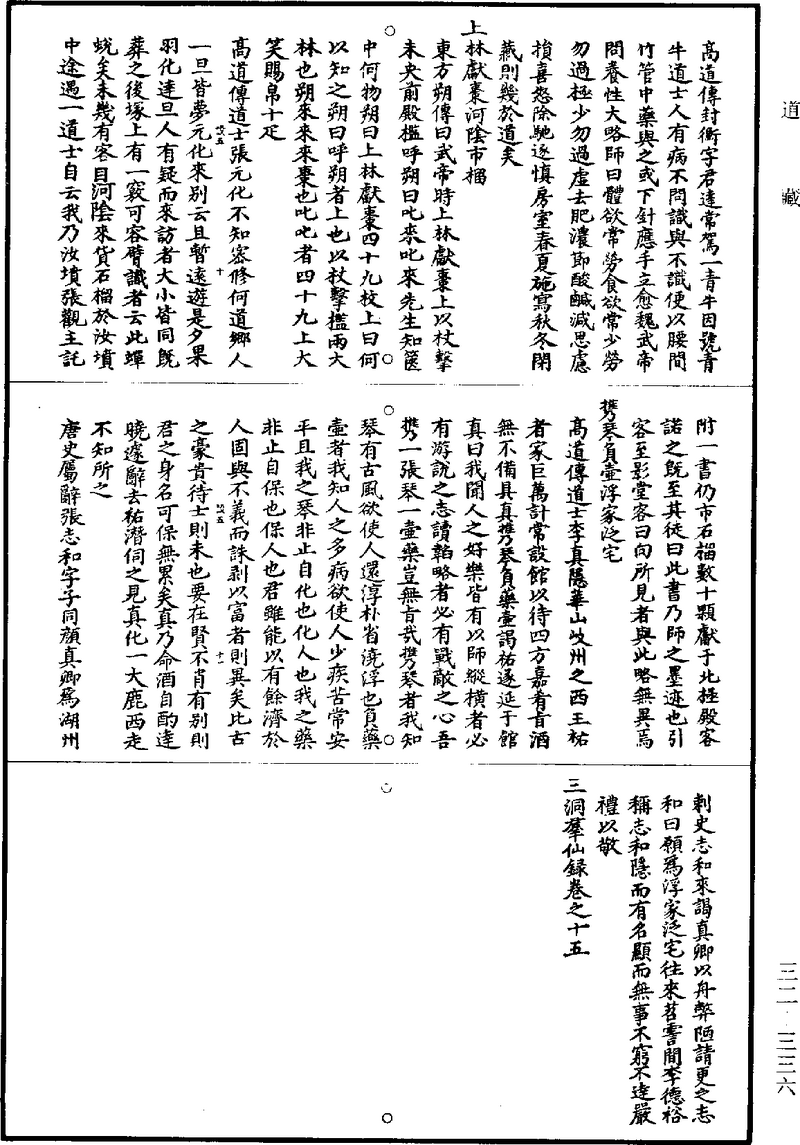 道藏
高道傳封衡字君達常駕一青牛因號青
牛道士人有病不問識與不識便以腰間
竹管中藥與之或下針應手立愈魏武帝
問養性大略師曰體欲常勞食欲常少勞
勿過極少勿過虛去肥濃節酸鹹減思慮
損喜怒除馳逐慎房室春夏施寫秋冬閉
藏則幾於道矣
上林獻棗河陰市榴
東方朔傳曰武帝時上林獻棗上以杖擊
未央前殿檻呼朔曰叱來叱來先生知篋
中何物朔曰上林獻棗四十九枚上曰何
以知之朔曰呼朔者上也以杖擊檻兩大
林也朔來來來棗也叱叱者四十九上大
笑賜帛十疋
高道傳道士張元化不知密修何道鄉人
一旦皆夢元化來別云且暫遠遊是夕果
羽化達旦人有疑而來訪者大小皆同既
葬之後塚上有一竅可容臂識者云此蟬
蛻矣未幾有客自河陰來貨石榴於汝墳
中途遇一道士自云我乃汝墳張觀主託
附一書仍市石榴數十顆獻于北極殿客
諾之既至其徒曰此書乃師之墨迹也引
客至影堂客曰向所見者與此略無異焉
携琴負壺浮家泛宅
高道傳道士李真隱華山岐州之西王祐
者家巨萬計常設館以待四方嘉肴旨酒
無不備具真携琴負藥壺謁祐遂延于館
真曰我聞人之好樂皆有以師縱橫者必
有游說之志讀韜略者必有戰敵之心吾
携一張琴一壺藥豈無旨哉携琴者我知
琴有古風欲使人還淳朴省澆浮也負藥
壺者我知人之多病欲使人少疾苦常安
平且我之琴非止自化也化人也我之藥
非止自保也保人也君雖能以有餘濟於
人固與不義而誅剥以富者則異矣比古
之豪貴待士則未也要在賢不肖有别則
君之身名可保無累矣真乃命酒自酌達
曉遽辭去祐潛伺之見真化一大鹿西走
不知所之
唐史屬辭張志和字子同顏真卿爲湖州
刺史志和來謁真卿以舟弊陋請更之志
和曰願爲浮家泛宅往來苕霅間李德裕
稱志和隱而有名顯而無事不窮不達嚴
禮以敬
三洞羣仙録卷之十五
三二·三三六